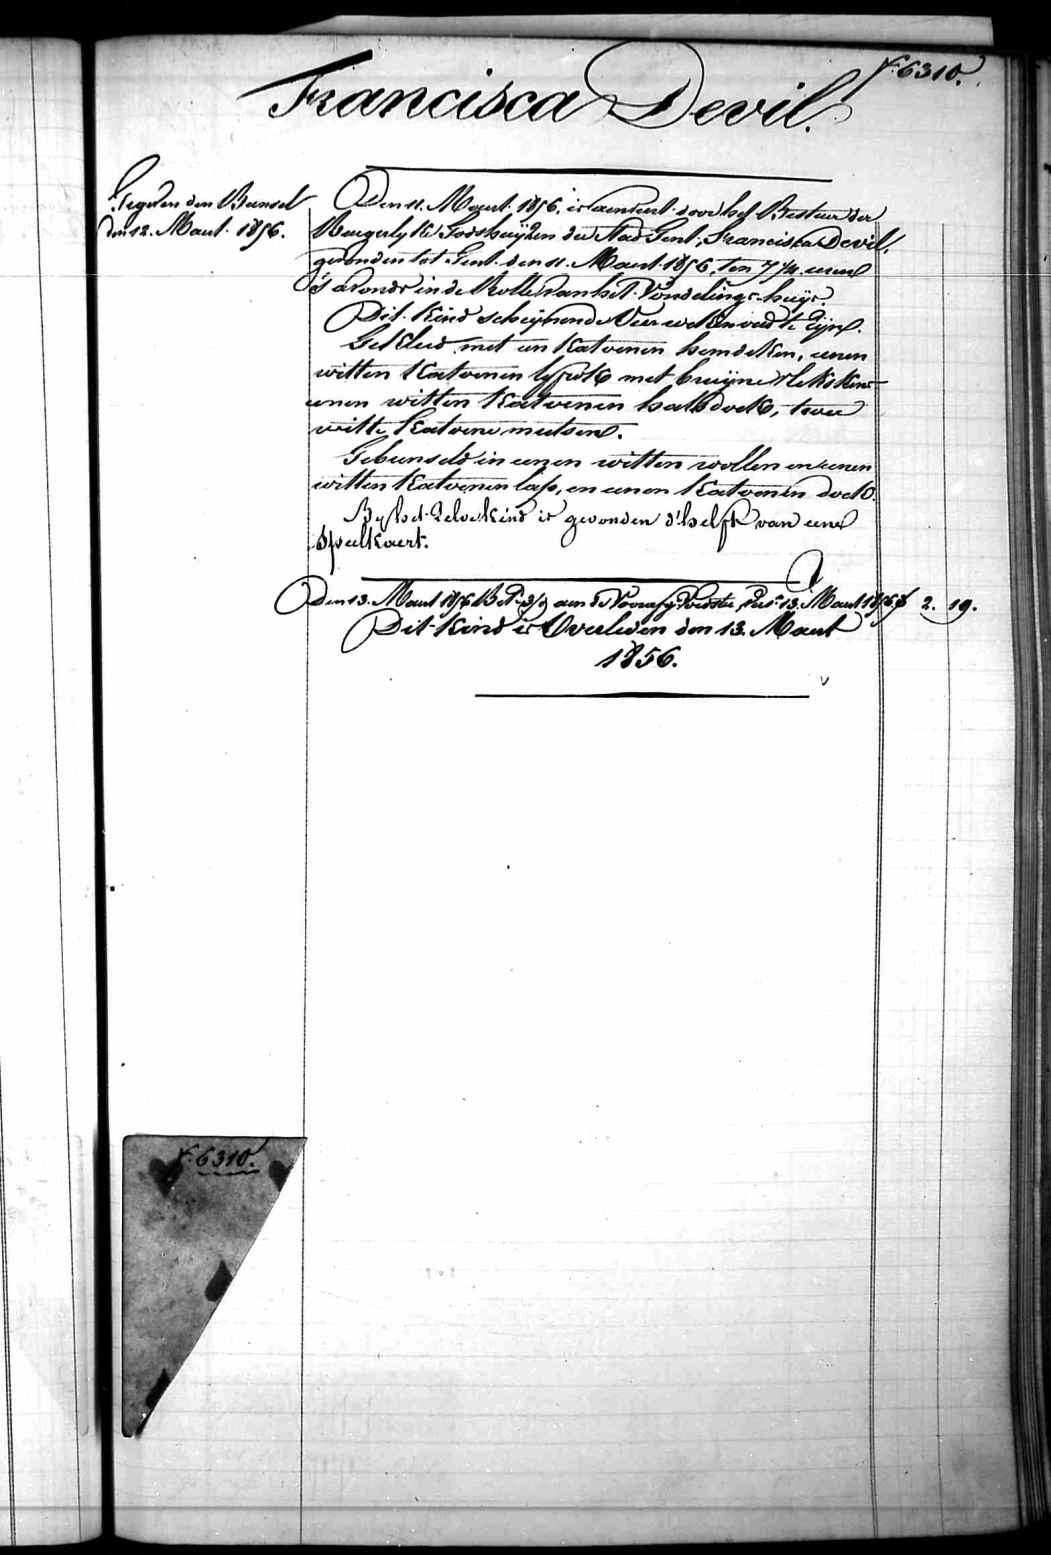 N. 6310.
Francisca Devil.
Gegeven den Bunsel
den 12. Maart 1856.
Den 11. Maert 1856. is aenveert door het Bestuer der
Burgerlyke Godshuyzen der Stad Gent, Francisca Devil.
gevonden tot Gent den 11. Maert 1856, ten 7 1/4 uren
's avonds in de Rolle van het Vondelings-huys.
Dit Kind schynende Vier weken oud te Zyn.
Gekleed met een Katoenen hemdeken, eenen
witten Katoenen lyfrok met bruyne vlekskens
eenen witten Katoenen halsdoek, twee
witte Katoene mutsen.
Gebunseld in eenen witten wollen en eenen
witten Katoenen lap, en eenen Katoenen doek.
By het Zelve kind is gevonden d'helft van eene
Speelkaert.
Den 13. Maert 1856 Bet. aen de 13. Maert 1856 f 2. 19.
Dit Kind is Overleden den 13. Maert
1856.
N. 6310.